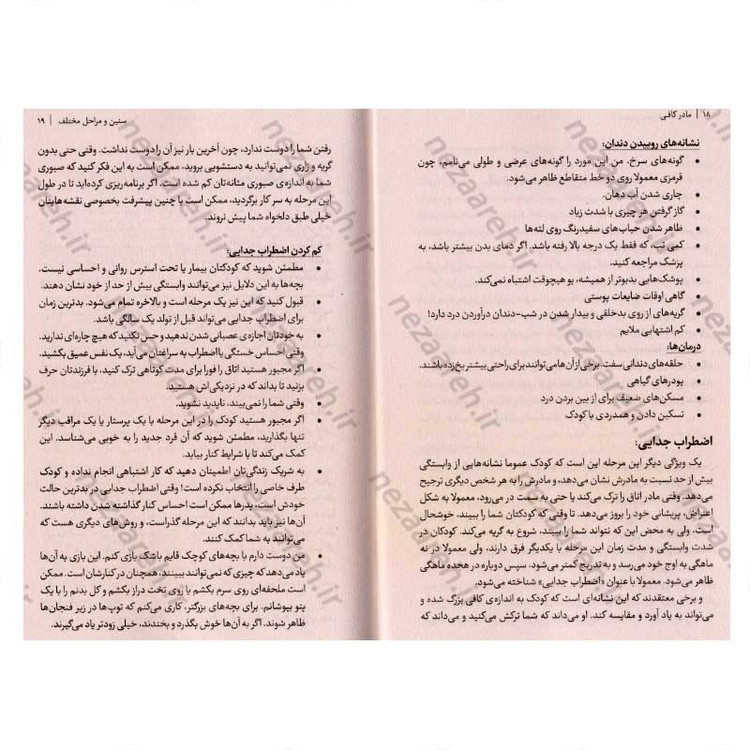 ۱۸ | مادر کافی
نشانه‌های روییدن دندان:
• گونه‌های سرخ، من این مورد را گونه‌های عرضی و طولی می‌نامم، چون
قرمزی معمولا روی دو خط متقاطع ظاهر می‌شود.
• جاری شدن آب دهان.
• گاز گرفتن هر چیزی با شدت زیاد
• ظاهر شدن حباب‌های سفیدرنگ روی لثه‌ها
• کمی تب، که فقط یک درجه بالا رفته باشد. اگر دمای بدن بیشتر باشد، به
پزشک مراجعه کنید.
• پوشک‌هایی بدبوتر از همیشه، بو هیچوقت اشتباه نمی‌کند.
• گاهی اوقات ضایعات پوستی
• گریه‌های از روی بدخلقی و بیدار شدن در شب-دندان درآوردن درد دارد!
• کم اشتهایی ملایم
درمان‌ها:
• حلقه‌های دندانی سفت. برخی از آن‌ها می‌توانند برای راحتی بیشتر یخ‌زده باشند.
• پودرهای گیاهی
• مسکن‌های ضعیف برای از بین بردن درد
• تسکین دادن و همدردی با کودک
اضطراب جدایی:
یک ویژگی دیگر این مرحله این است که کودک عموما نشانه‌هایی از وابستگی
بیش از حد نسبت به مادرش نشان می‌دهد، و مادرش را به هر شخص دیگری ترجیح
می‌دهد. وقتی مادر اتاق را ترک می‌کند یا حتی به سمت در می‌رود، معمولا به شکل
اعتراض، پریشانی خود را بروز می‌دهد. تا وقتی که کودکتان شما را ببیند، خوشحال
است. ولی به محض این که نتواند شما را ببیند، شروع به گریه می‌کند. کودکان در
شدت وابستگی و مدت زمان این مرحله با یکدیگر فرق دارند، ولی معمولا در نه
ماهگی به اوج خود می‌رسد و به تدریج کمتر می‌شود، سپس دوباره در هجده ماهگی
ظاهر می‌شود. معمولا با عنوان «اضطراب جدایی» شناخته می‌شود.
و برخی معتقدند که این نشانه‌ای است که کودک به اندازه‌ی کافی بزرگ شده و
می‌تواند به یاد آورد و مقایسه کند. او می‌داند که شما ترکش می‌کنید و می‌داند که
سنین و مراحل مختلف | ۱۹
رفتن شما را دوست ندارد، چون آخرین بار نیز آن را دوست نداشت. وقتی حتی بدون
گریه و زاری نمی‌توانید به دستشویی بروید، ممکن است به این فکر کنید که صبوری
شما به اندازه‌ی صبوری مثانه‌تان کم شده است. اگر برنامه‌ریزی کرده‌اید تا در طول
این مرحله به سر کار برگردید، ممکن است با چنین پیشرفت بخصوصی نقشه‌هایتان
خیلی طبق دلخواه شما پیش نروند.
کم کردن اضطراب جدایی:
• مطمئن شوید که کودکتان بیمار یا تحت استرس روانی و احساسی نیست.
بچه‌ها به این دلایل نیز می‌توانند وابستگی بیش از حد از خود نشان دهند.
• قبول کنید که این نیز یک مرحله است و بالاخره تمام می‌شود. بدترین زمان
برای اضطراب جدایی می‌تواند قبل از تولد یک سالگی باشد.
• به خودتان اجازه‌ی عصبانی شدن ندهید و حس نکنید که هیچ چاره‌ای ندارید.
وقتی احساس خستگی یا اضطراب به سراغتان می‌آید، یک نفس عمیق بکشید.
• اگر مجبور هستید اتاق را فورا برای مدت کوتاهی ترک کنید، با فرزندتان حرف
بزنید تا بداند که در نزدیکی‌اش هستید.
• وقتی شما را نمی‌بیند، ناپدید نشوید.
• اگر مجبور هستید کودک را در این مرحله با یک پرستار یا یک مراقب دیگر
تنها بگذارید، مطمئن شوید که آن فرد جدید را به خوبی می‌شناسد. این
کمک می‌کند تا با شرایط کنار بیاید.
• به شریک زندگی‌تان اطمینان دهید که کار اشتباهی انجام نداده و کودک
طرف خاصی را انتخاب نکرده است! وقتی اضطراب جدایی در بدترین حالت
خودش است، پدرها ممکن است احساس کنار گذاشته شدن داشته باشند.
آن‌ها نیز باید بدانند که این مرحله گذراست، و روش‌های دیگری هست که
می‌توانند به شما کمک کنند.
• من دوست دارم با بچه‌های کوچک قایم باشک بازی کنم. این بازی به آن‌ها
یاد می‌دهد که چیزی که نمی‌توانند ببینند، همچنان در کنارشان است. ممکن
است ملحفه‌ای روی سرم بکشم یا روی تخت دراز بکشم و کل بدنم را با یک
پتو بپوشانم. برای بچه‌های بزرگتر، کاری می‌کنم که توپ‌ها در زیر فنجان‌ها
ظاهر شوند. اگر به آن‌ها خوش بگذرد و بخندند، خیلی زودتر یاد می‌گیرند.
nezaareh.ir